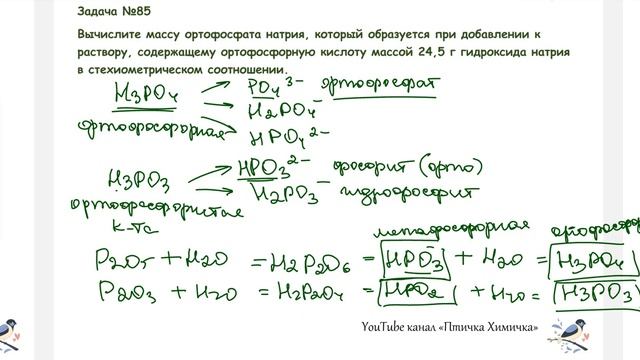 Задача №85
Вычислите массу ортофосфата натрия, который образуется при добавлении к
раствору, содержащему ортофосфорную кислоту массой 24,5 г гидроксида натрия
в стехиометрическом соотношении.
H₃PO₄ → PO₄³⁻ ортофосфат
→ H₂PO₄⁻
ортофосфорная → HPO₄²⁻
H₃PO₃ → HPO₃²⁻ фосфит (орто)
→ H₂PO₃⁻ гидрофосфит
ортофосфористая
к-та
метафосфорная ортофосфор
P₂O₅ + H₂O = H₂P₂O₆ = HPO₃ + H₂O = H₃PO₄
P₂O₃ + H₂O = H₂P₂O₄ = HPO₂ + H₂O = H₃PO₃
YouTube канал «Птичка Химичка»